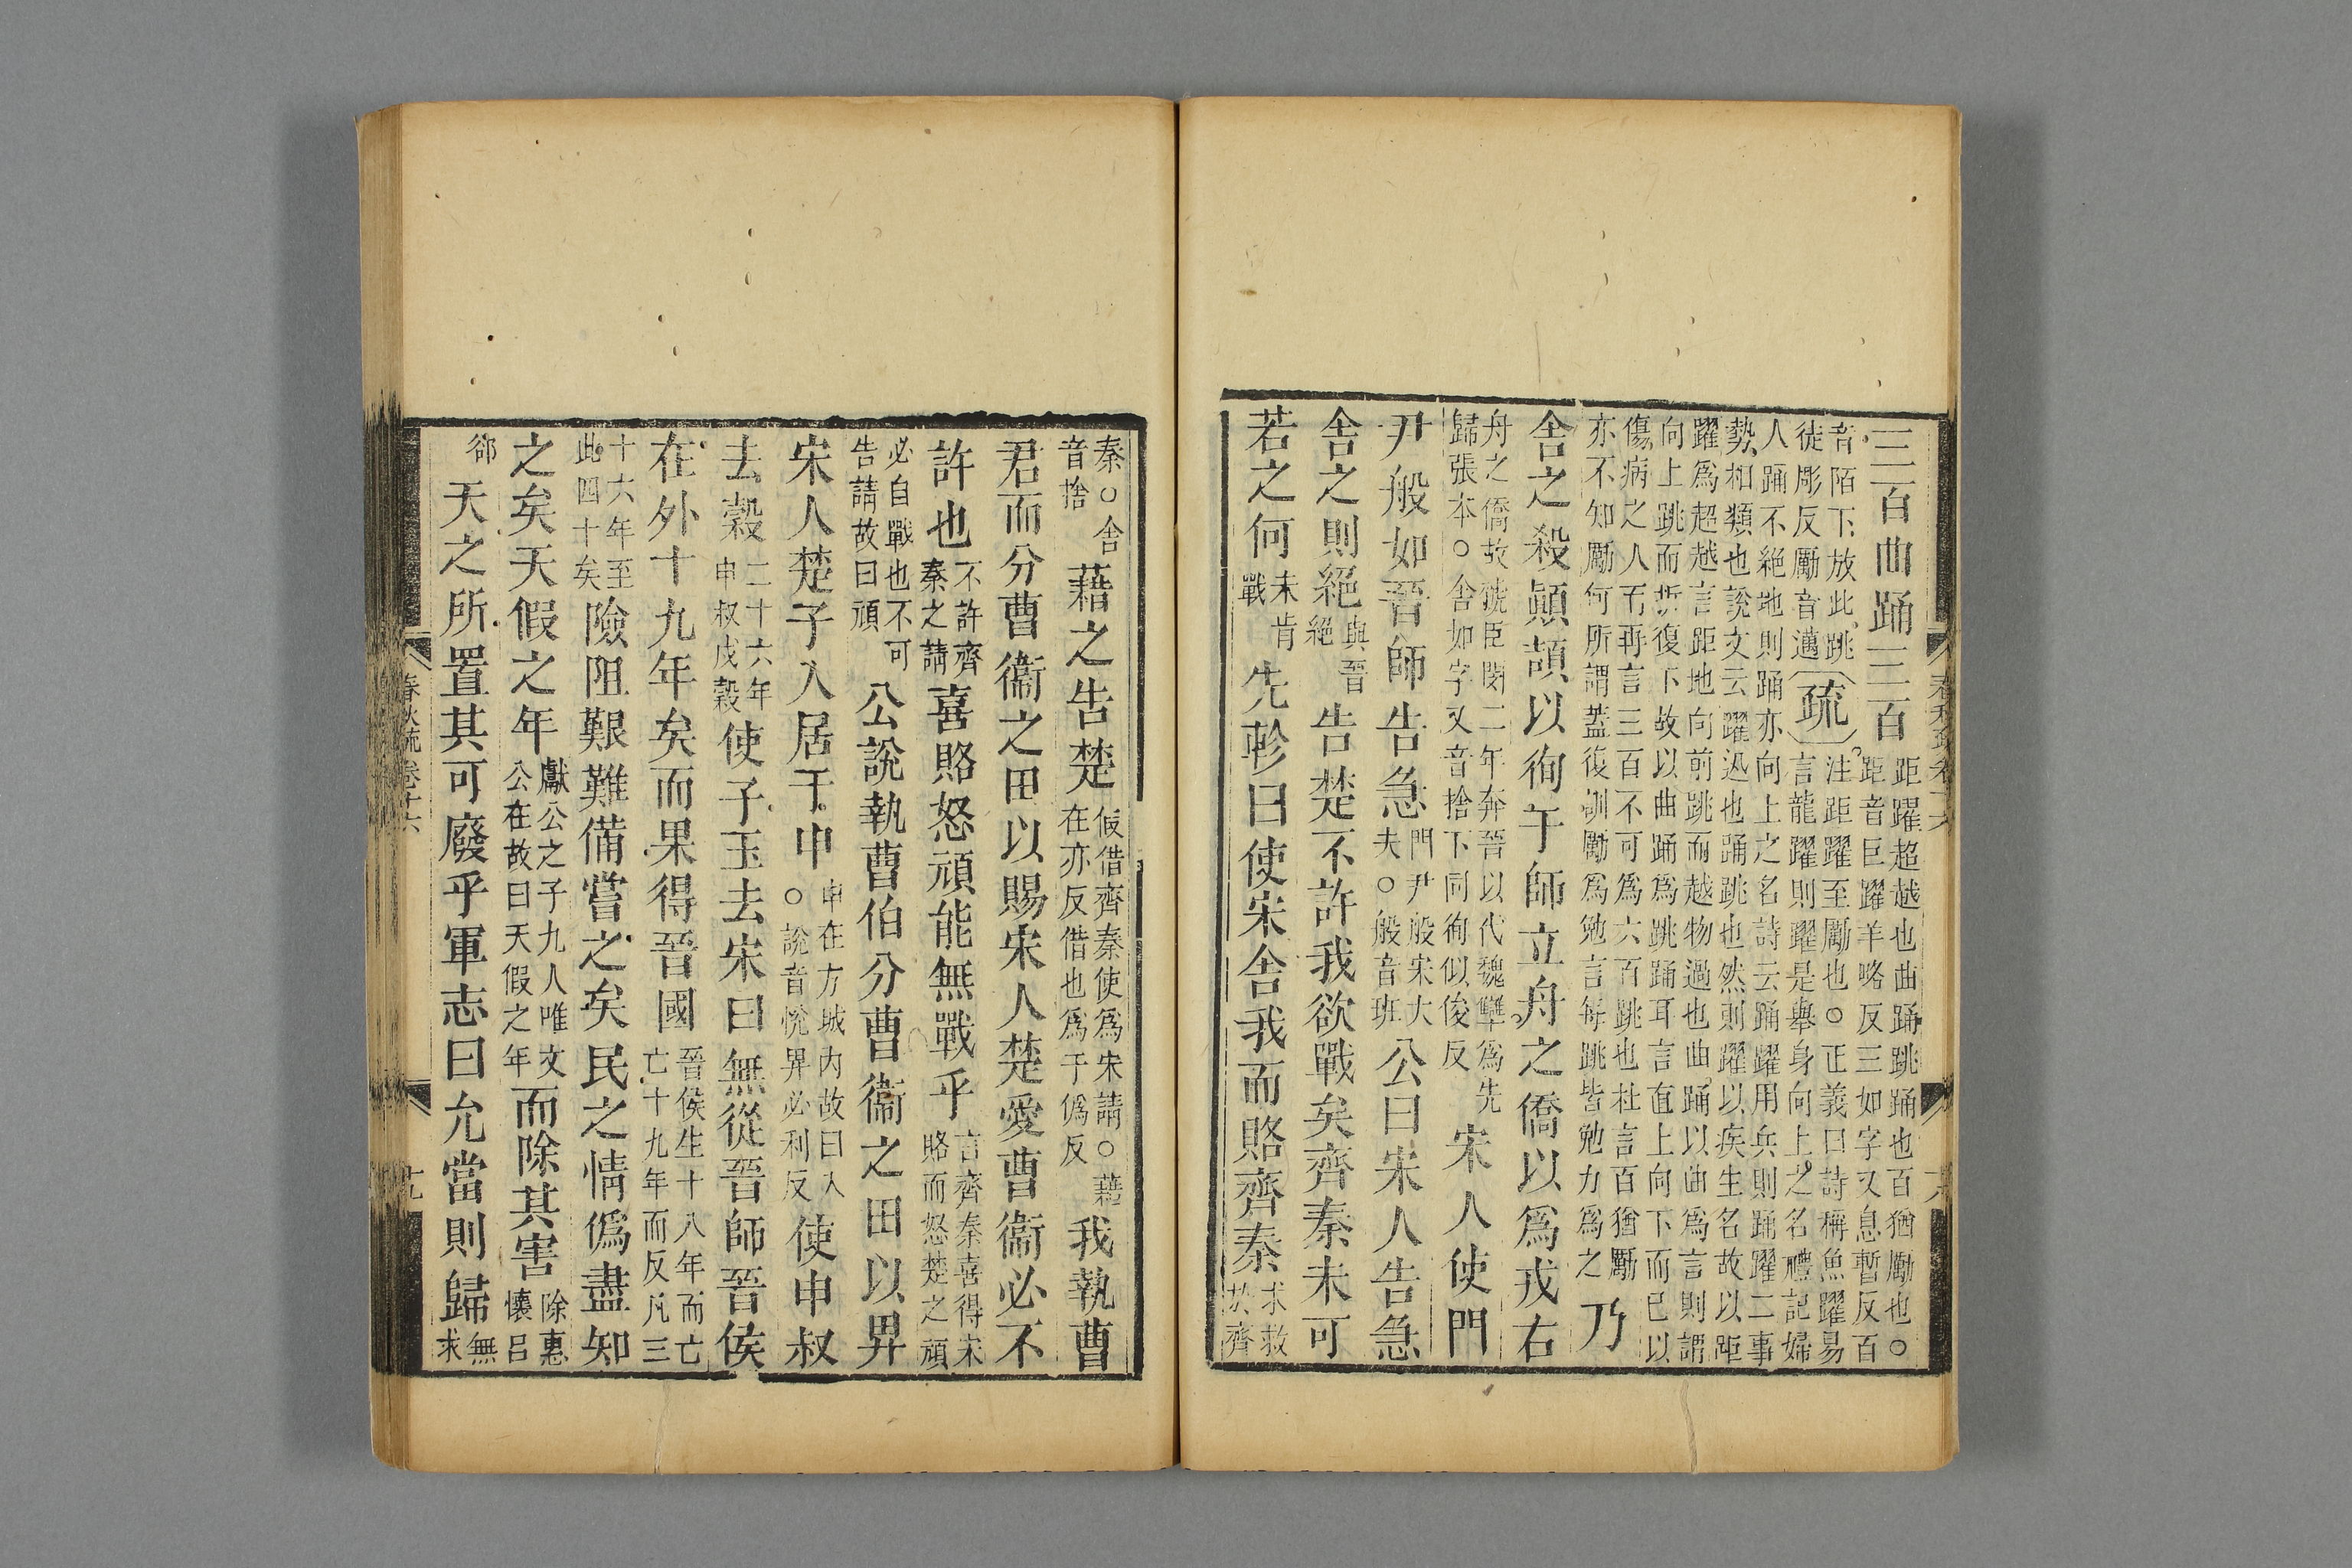 三百曲踊三百
距躍超越也曲踊跳踊也百猶勵也○
距音巨躍羊略反三如字又息暫反百
音陌下放此跳
徒彫反勵音邁
疏
注距躍至勵也○正義曰詩稱魚躍易
言龍躍則躍是舉身向上之名禮記婦
人踊不絕地則踊亦向上之名詩云踊躍用兵則踊躍二事
勢相類也說文云躍迅也踊跳也然則躍以疾生名故以距
躍爲超越言距地向前跳而越物過也曲踊以曲爲言則謂
向上跳而折復下故以曲踊爲跳踊耳言直上向下而已以
傷病之人而再言三百不可爲六百跳也杜言百猶勵
亦不知勵何所謂蓋復訓勵爲勉言每跳皆勉力爲之
乃
舍之殺顛頡以徇于師立舟之僑以爲戎右
舟之僑故虢臣閔二年奔晉以代魏犨爲先
歸張本○舍如字又音捨下同徇似俊反
宋人使門
尹般如晉師告急
門尹般宋大
夫○般音班
公曰宋人告急
舍之則絕
與晉
絕
告楚不許我欲戰矣齊秦未可
若之何
未肯
戰
先軫曰使宋舍我而賂齊秦
求救
於齊
秦○舍
音捨
藉之告楚
假借齊秦使爲宋請○藉
在亦反借也爲于僞反
我執曹
君而分曹衞之田以賜宋人楚愛曹衞必不
許也
不許齊
秦之請
喜賂怒頑能無戰乎
言齊秦喜得宋
賂而怒楚之頑
必自戰也不可
告請故曰頑
公說執曹伯分曹衞之田以畀
宋人楚子入居于申
申在方城內故曰入
○說音悅畀必利反
使申叔
去穀
二十六年
申叔戍穀
使子玉去宋曰無從晉師晉侯
在外十九年矣而果得晉國
晉侯生十八年而亡
亡十九年而反凡三
十六年至
此四十矣
險阻艱難備嘗之矣民之情僞盡知
之矣天假之年
獻公之子九人唯文
公在故曰天假之年
而除其害
除惠
懷呂
郤
天之所置其可廢乎軍志曰允當則歸
無
求
春秋疏卷十六